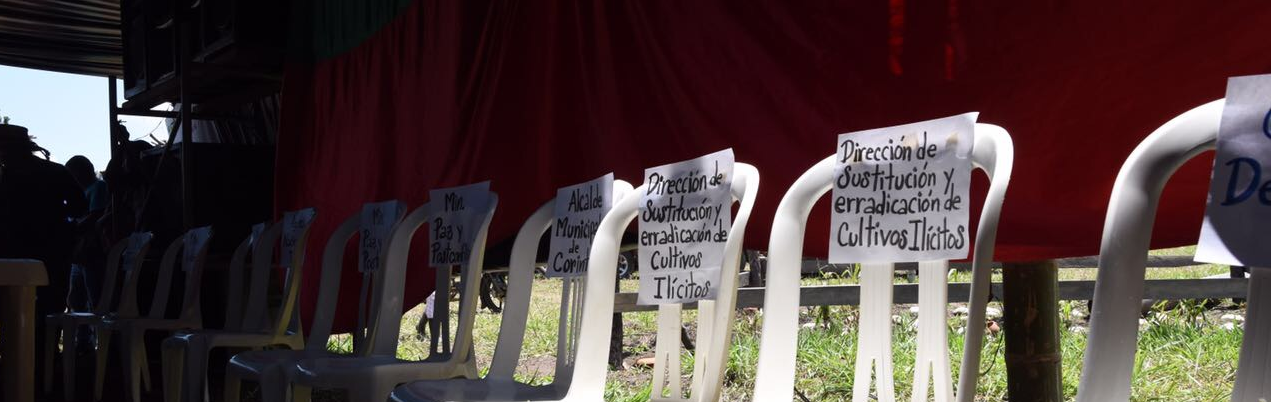 Min.
Paz y
Min.
Paz y
Alcalde
Municipal
de
Dirección de
Sustitución y
erradicación de
Cultivos
Ilícitos
Dirección de
Sustitución y
erradicación de
Cultivos Ilícitos